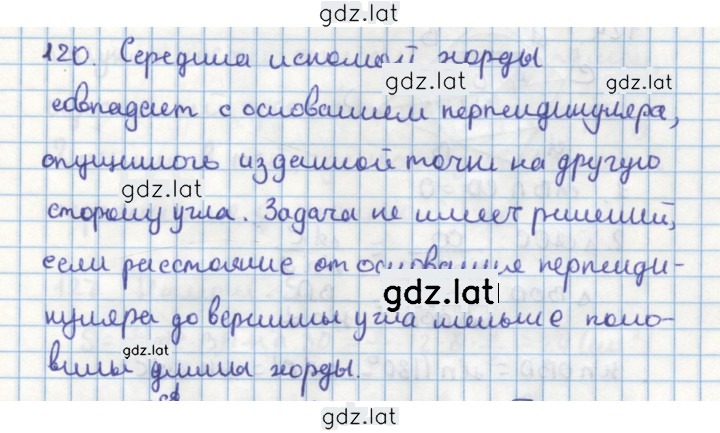 gdz.lat
120. Середина искомой хорды
gdz.lat
gdz.lat
совпадает с основанием перпендикуляра,
опущенного из данной точки на другую
gdz.lat
gdz.lat
сторону угла. Задача не имеет решений,
если расстояние от основания перпенди-
gdz.lat
куляра до вершины угла меньше поло-
gdz.lat
вины длины хорды.
gdz.lat